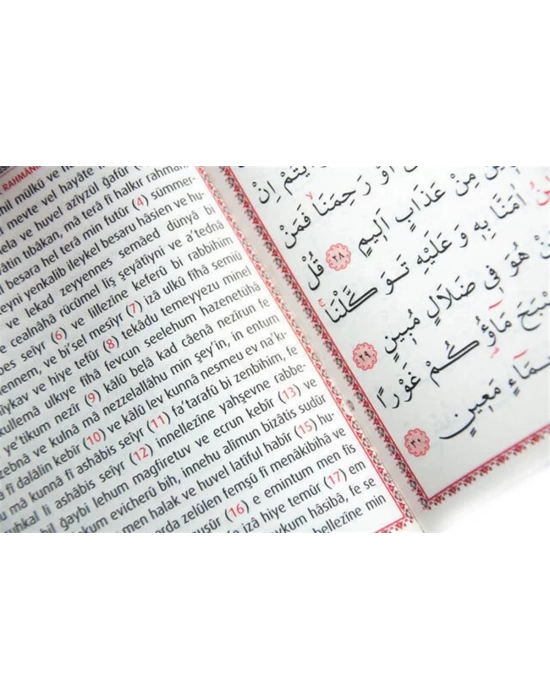 RAHMANİ
mülkü ve
meyte vel hayâte
ve huvel azîyzül gafûr
tıbâkan, mâ terâ fî halkır rahmani
besara hel terâ min futûr (4) sümmer-
yenkalib ileykel besaru hâsien ve hu-
ve lekad zeyyennes semâed dünyâ bi
cealnâhâ rücûmel liş şeyâtîyni ve a'tednâ
seîyr (6) ve lillezîne keferû bi rabbihim
ve bi'sel mesîyr (7) izâ ulkû fîhâ semiû
ve hiye tefûr (8) tekâdu temeyyezu minel
kullemâ ulkıye fîhâ fevcun seelehum hazenetühâ
e'tikum nezîr (9) kâlû belâ kad câenâ nezîrun fe
zebnâ ve kulnâ mâ nezzelallâhu min şey'in, in entum
fî dalâlin kebîr (10) ve kâlû lev kunnâ nesmeu ev na'k-
mâ kunnâ fî ashâbis seîyr (11) fa'tarafû bi zenbihim, fe
uhkal li ashâbis seîyr (12) innellezîne yahşevne rabbe-
bil ğaybi lehum mağfiretuv ve ecrun kebîr (13) ve
kum evicherû bih, innehu alîmun bizâtis sudûr
men halak ve huvel latîful habîr (15) hu-
arda zelûlen femşû fî menâkibihâ ve
nuşûr (16) e emintum men fis
izâ hiye temûr (17) em
aykum hâsibâ, fe se
bellezîne min
اِنْ
اَوْ رَحِمَنَا فَمَنْ
مِنْ عَذَابٍ اَلٖيمٍ ﴿٢٨﴾ قُلْ
اٰمَنَّا بِهٖ وَعَلَيْهِ تَوَكَّلْنَا
هُوَ فٖى ضَلَالٍ مُبٖينٍ ﴿٢٩﴾
مَٓاؤُكُمْ غَوْرًا
مَعٖينٍ ﴿٣٠﴾